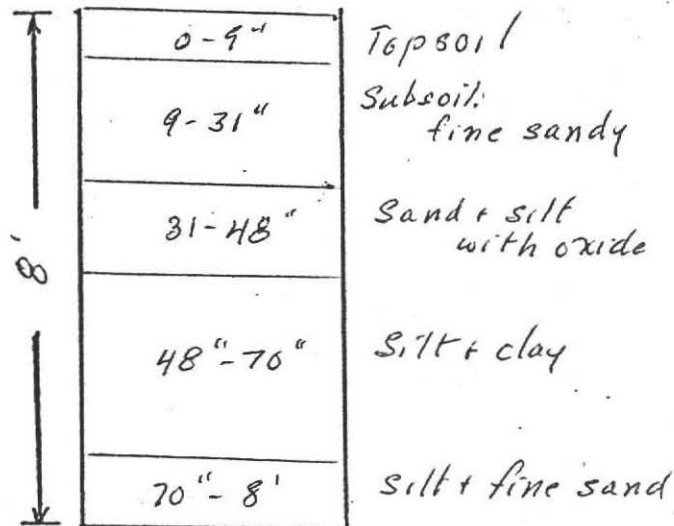 0-9" Topsoil
9-31" Subsoil:
fine sandy
31-48" Sand + silt
with oxide
8'
48"-70" Silt + clay
70"-8' Silt + fine sand